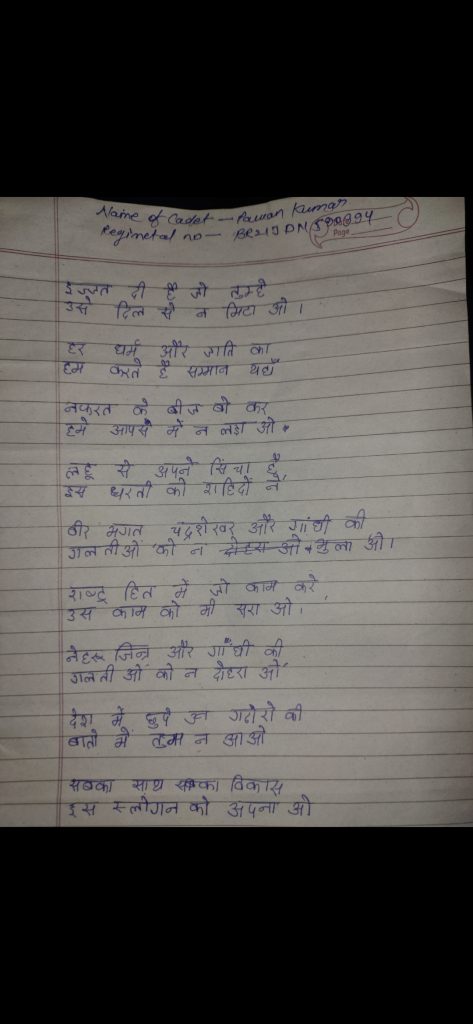 Name of Cadet — Pawan Kumar
Regimetal no — BR21JDN
Page
इज्जत दी है जो तुम्हे
उसे दिल से न मिटा ओ ।
हर धर्म और जाति का
हम करते है सम्मान यहाँ
नफरत के बीज बो कर
हमे आपसे में न लड़ा ओ
लहू से अपने सिंचा है
इस धरती को शहिदों ने
बीर भगत चंद्रशेखर और गांधी की
गलतीओं को न दोहरा ओ भुला ओ ।
राष्ट्र हित में जो काम करे
उस काम को भी सरा ओ ।
नेहरू जिन्न और गाँधी की
गलती ओं को न दोहरा ओं
देश में छुपे उन गदोरो की
बातो में तुम न आओ
सबका साथ सबका विकास
इस स्लोगन को अपना ओ